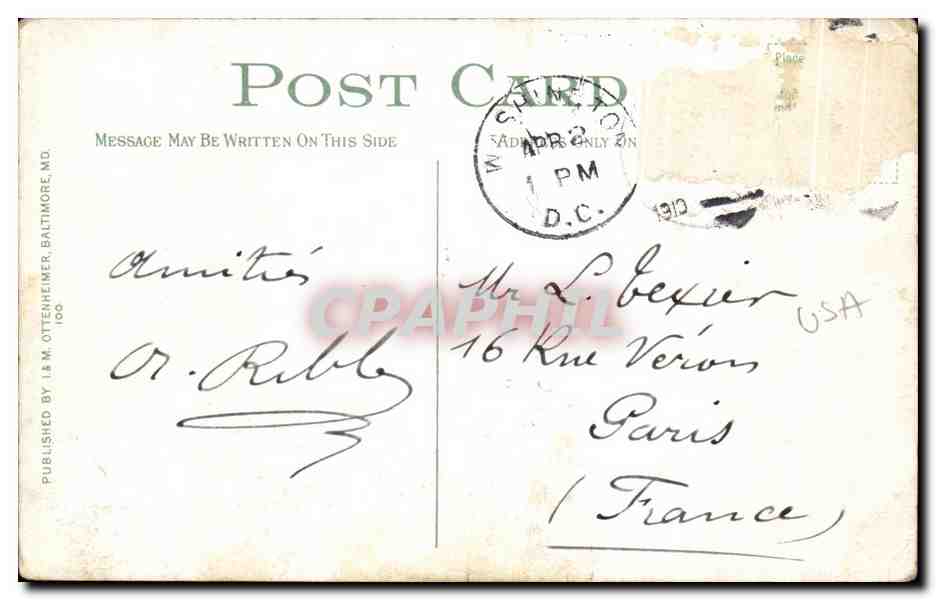 POST CARD
Place
MESSAGE MAY BE WRITTEN ON THIS SIDE
ADDRESS ONLY ON
WASHINGTON
APR 2
1 PM
D.C.
1910
PUBLISHED BY I. & M. OTTENHEIMER, BALTIMORE, MD.
100
Amitiés
A. Ribble
Mr L. Texier
16 Rue Véron
Paris
(France)
USA
CPAPHIL